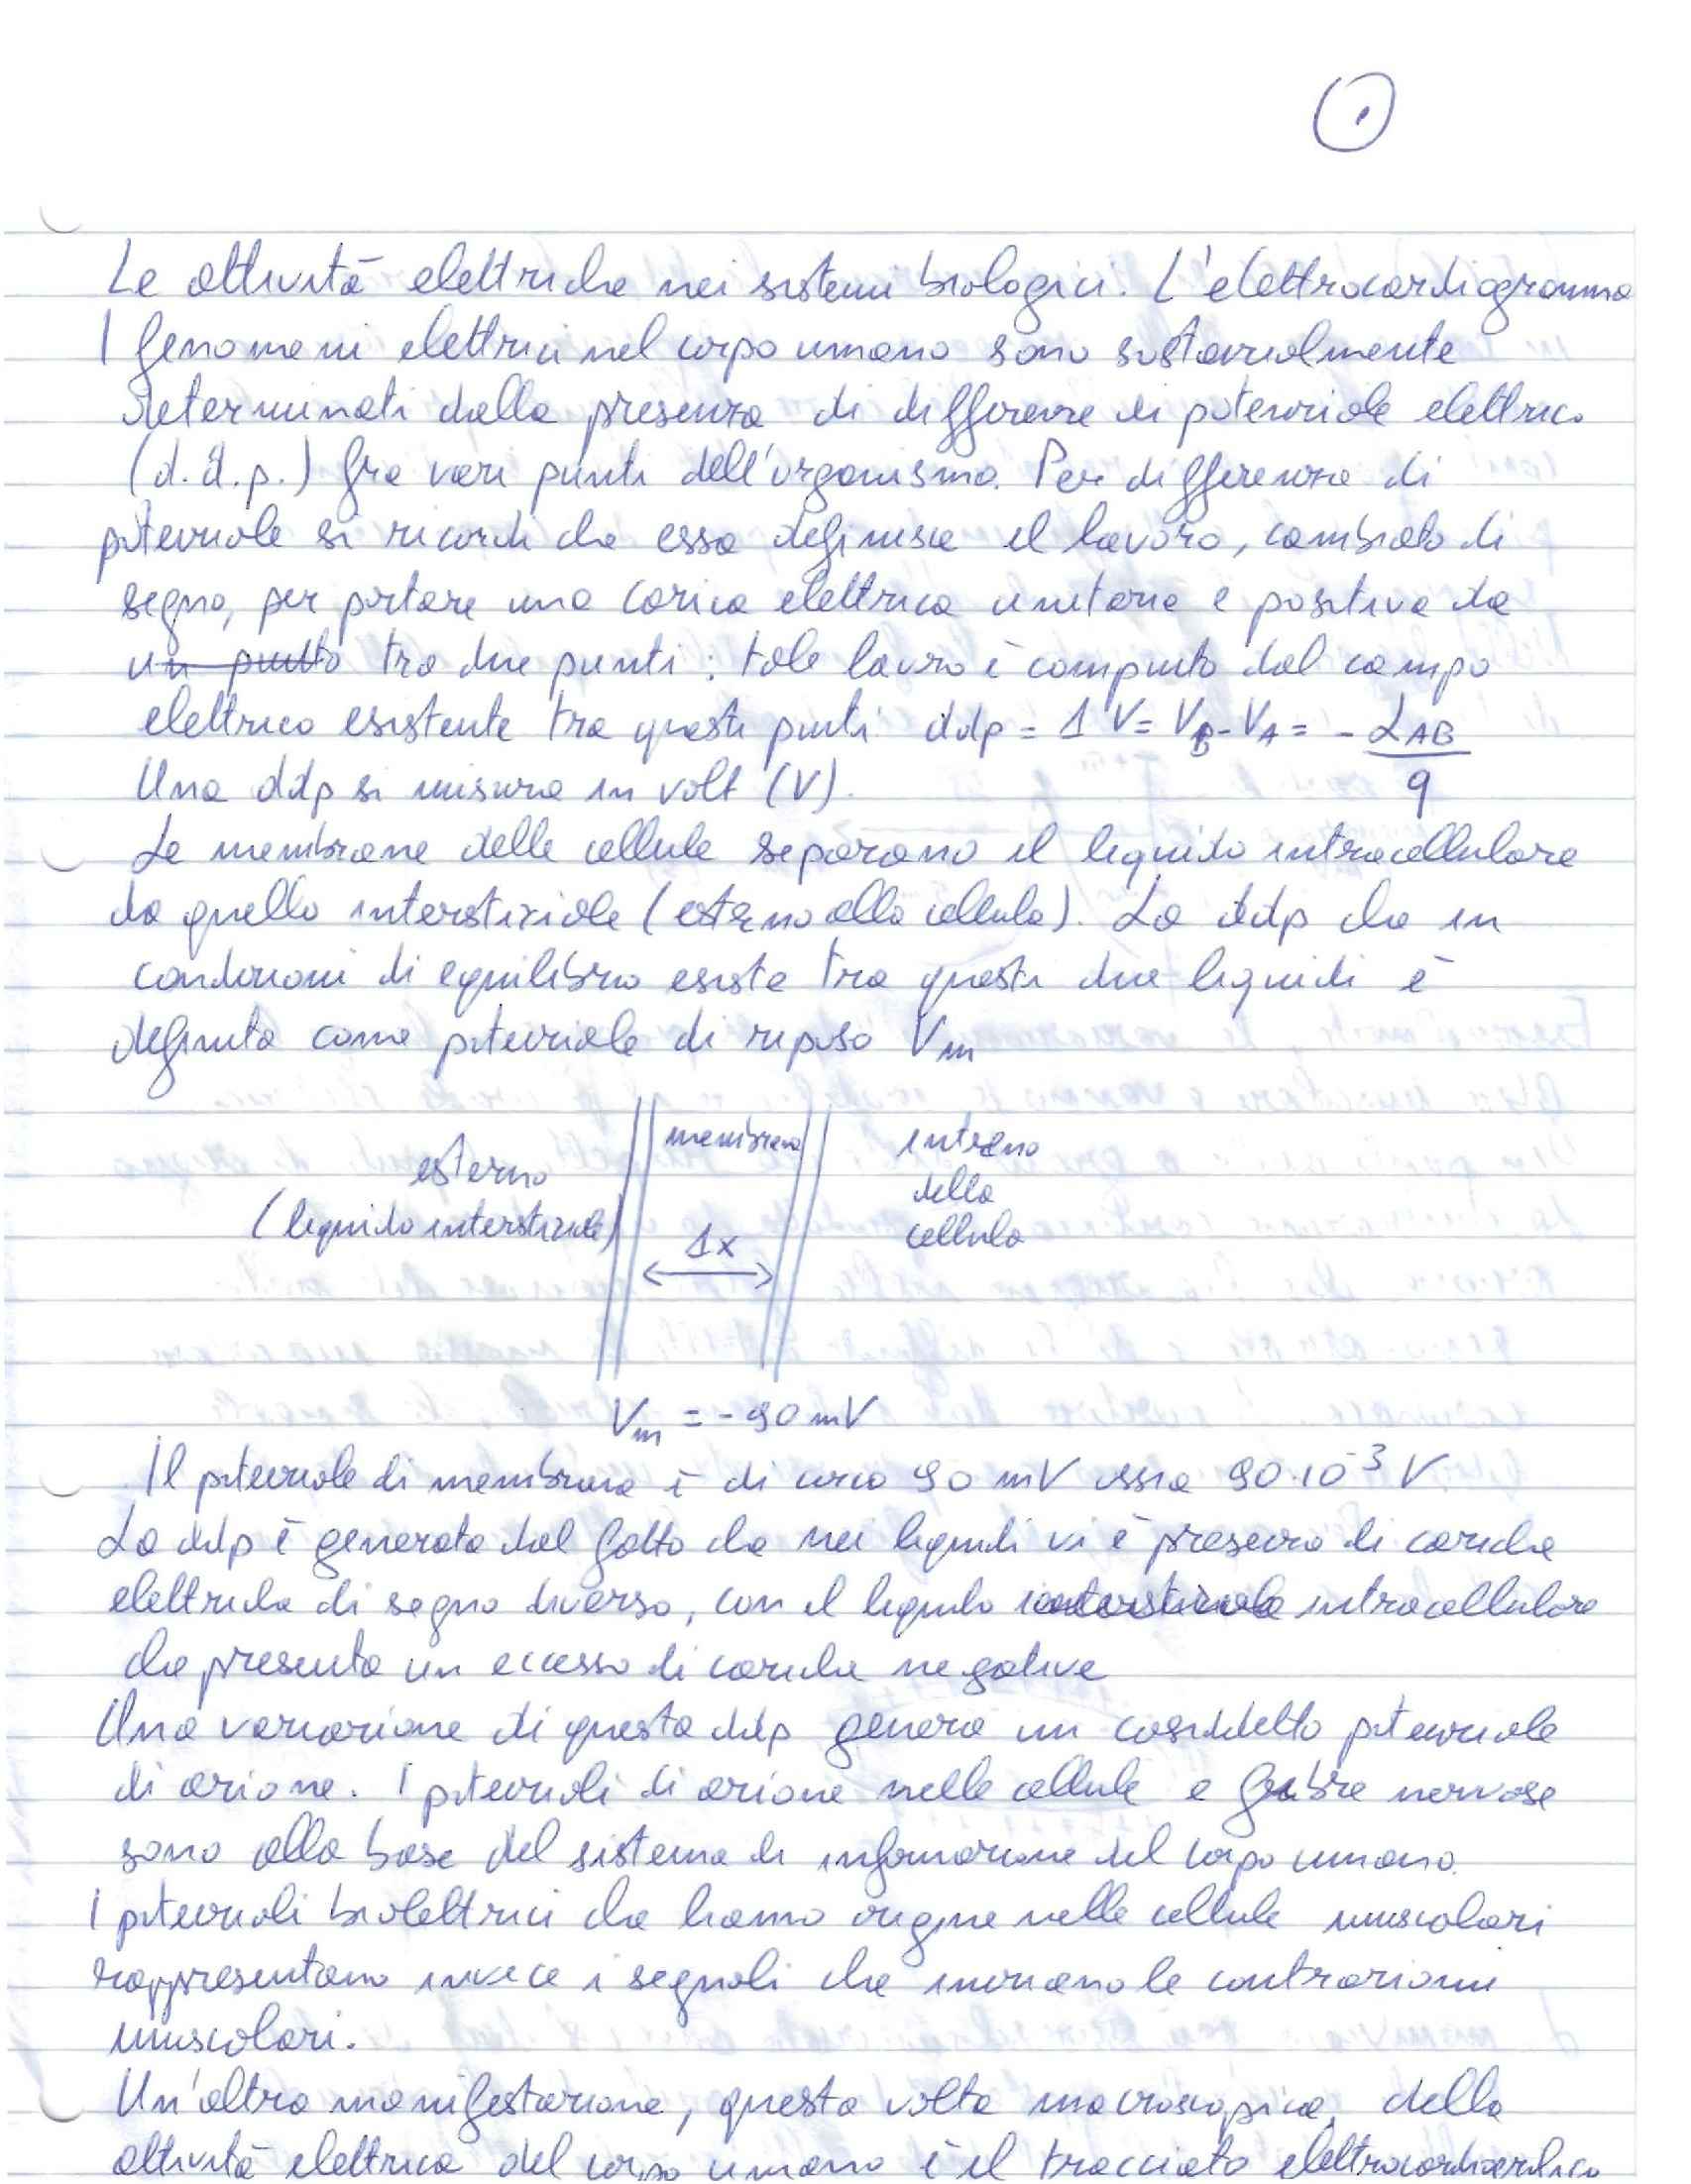 1
Le attività elettriche nei sistemi biologici. L'elettrocardiogramma
I fenomeni elettrici nel corpo umano sono sostanzialmente
determinati dalla presenza di differenze di potenziale elettrico
(d.d.p.) fra vari punti dell'organismo. Per differenza di
potenziale si ricordi che essa definisce il lavoro, cambiato di
segno, per portare una carica elettrica unitaria e positiva da
un punto tra due punti: tale lavoro è compiuto dal campo
elettrico esistente tra questi punti ddp = ΔV = VB - VA = - LAB / q
Una ddp si misura in volt (V).
Le membrane delle cellule separano il liquido intracellulare
da quello interstiziale (esterno alla cellula). La ddp che in
condizioni di equilibrio esiste tra questi due liquidi è
definita come potenziale di riposo Vm
membrana
esterno
(liquido interstiziale)
interno
della
cellula
Δx
Vm = - 90 mV
Il potenziale di membrana è di circa 90 mV ossia 90·10⁻³ V.
La ddp è generata dal fatto che nei liquidi vi è presenza di cariche
elettriche di segno diverso, con il liquido intracellulare
che presenta un eccesso di cariche negative
Una variazione di questa ddp genera un cosiddetto potenziale
di azione. I potenziali di azione nelle cellule e fibre nervose
sono alla base del sistema di informazione del corpo umano.
I potenziali biolettrici che hanno origine nelle cellule muscolari
rappresentano invece i segnali che iniziano le contrazioni
muscolari.
Un'altra manifestazione, questa volta macroscopica, della
attività elettrica del corpo umano è il tracciato elettrocardiografico